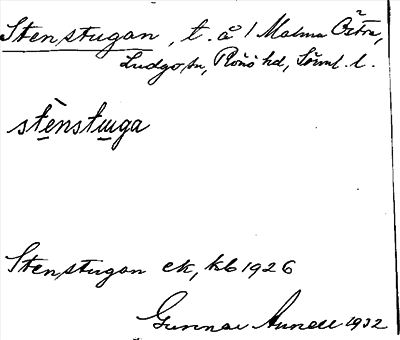 Stenstugan, t. å 1 Malma Östra,
Ludgo sn, Rönö hd, Sörml. l.
stènstuga
Stenstugan ek, kb 1926
Gunnar 1932